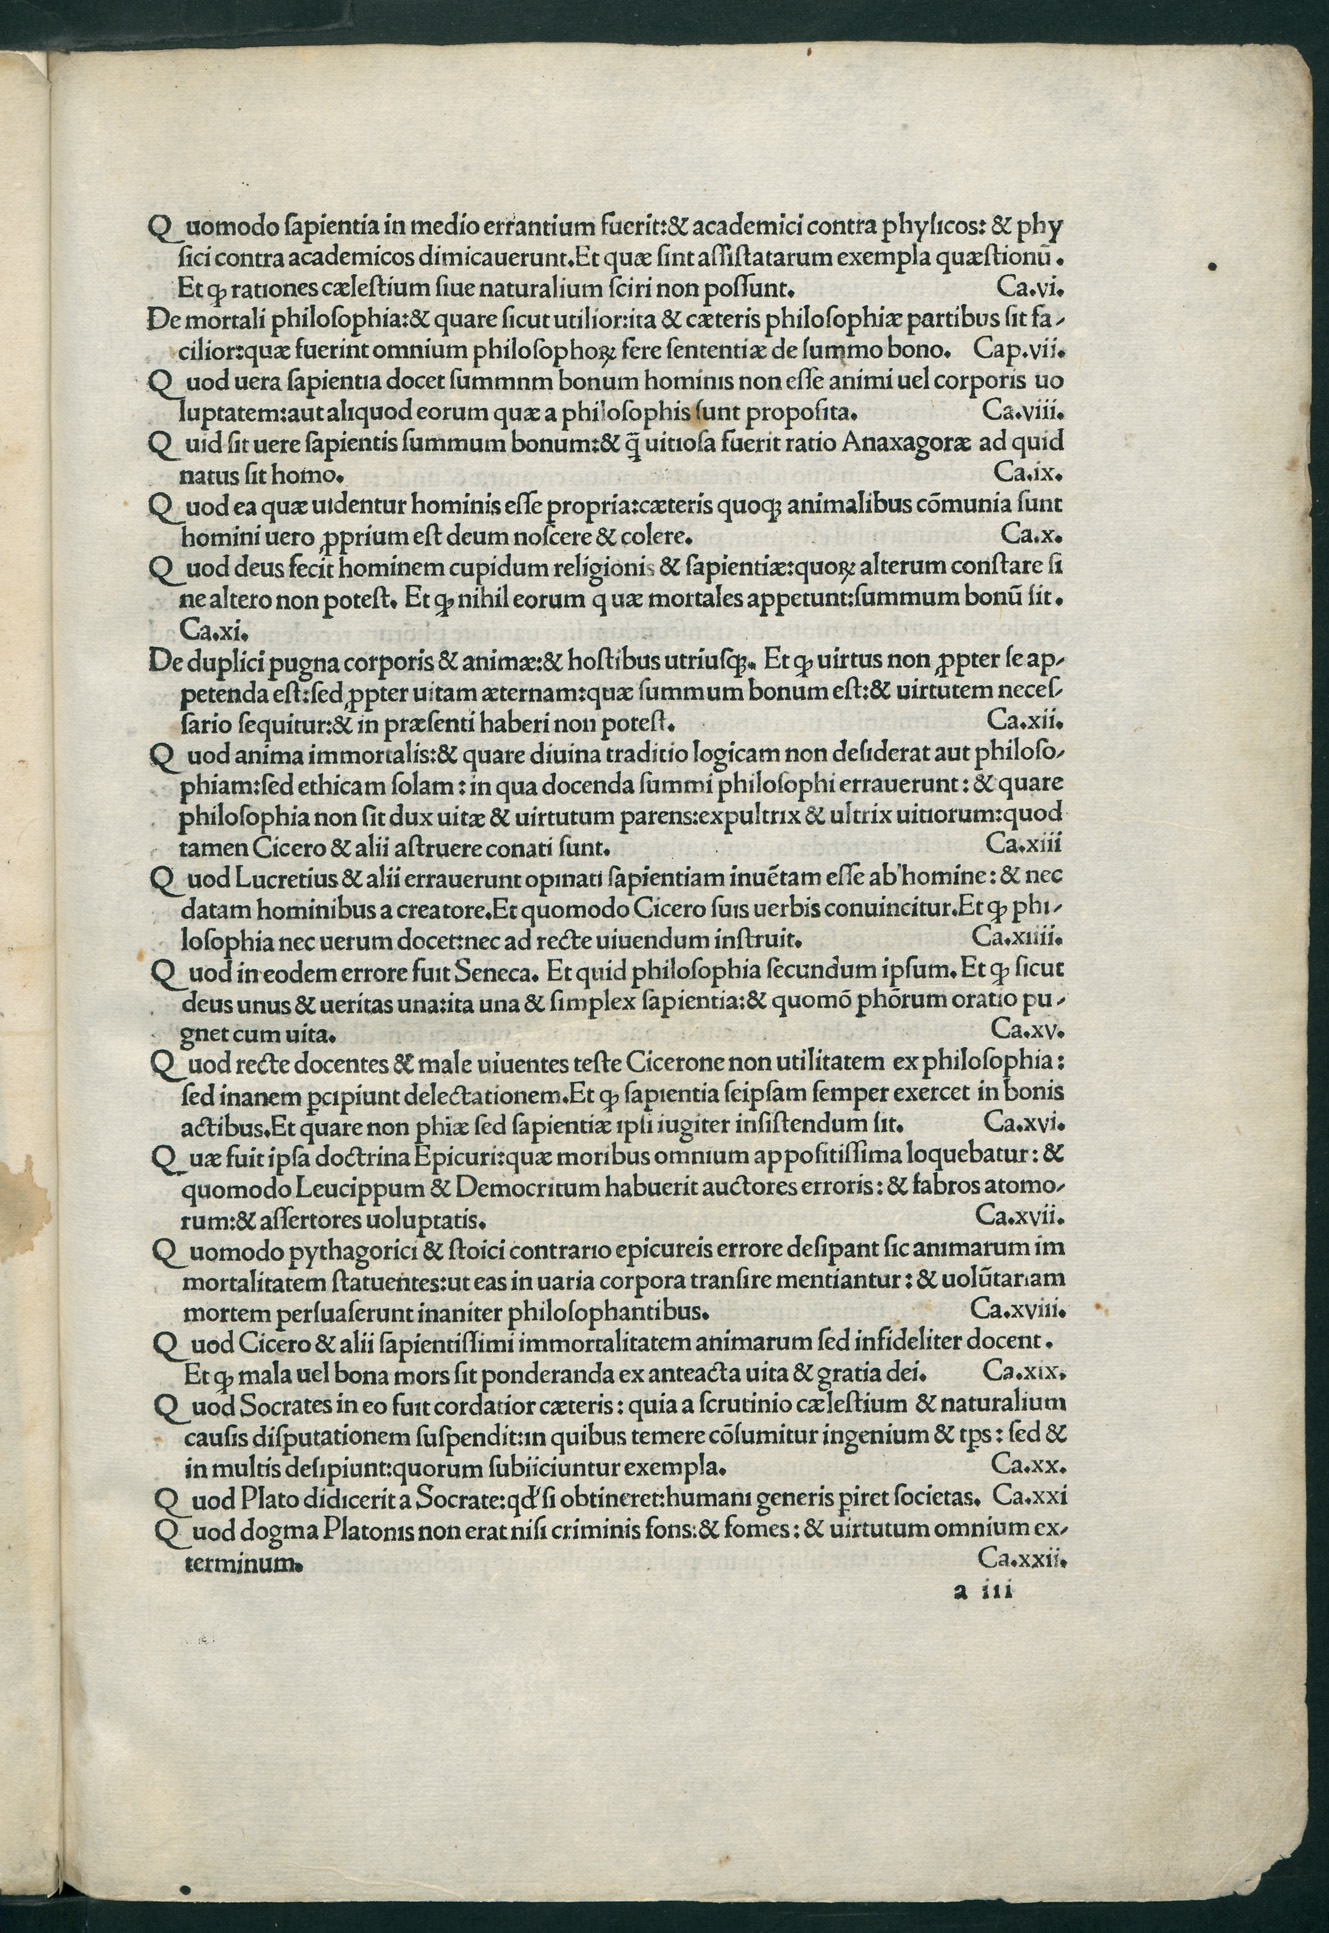 Quomodo ſapientia in medio errantium fuerit:& academici contra phyſicos: & phy
ſici contra academicos dimicauerunt.Et quæ ſint aſſiſtatarum exempla quæſtionū.
Et ꝙ rationes cæleſtium ſiue naturalium ſciri non poſſunt. Ca.vi.
De mortali philoſophia:& quare ſicut utilior:ita & cæteris philoſophiæ partibus ſit fa-
cilior:quæ fuerint omnium philoſophoꝝ fere ſententiæ de ſummo bono. Cap.vii.
Quod uera ſapientia docet ſummnm bonum hominis non eſſe animi uel corporis uo
luptatem:aut aliquod eorum quæ a philoſophis ſunt propoſita. Ca.viii.
Quid ſit uere ſapientis ſummum bonum:& q̄ uitioſa fuerit ratio Anaxagoræ ad quid
natus ſit homo. Ca.ix.
Quod ea quæ uidentur hominis eſſe propria:cæteris quoqꝫ animalibus cōmunia ſunt
homini uero ꝓprium eſt deum noſcere & colere. Ca.x.
Quod deus fecit hominem cupidum religionis & ſapientiæ:quoꝝ alterum conſtare ſi
ne altero non poteſt. Et ꝙ nihil eorum quæ mortales appetunt:ſummum bonū ſit.
Ca.xi.
De duplici pugna corporis & animæ:& hoſtibus utriuſqꝫ. Et ꝙ uirtus non ꝓpter ſe ap-
petenda eſt:ſed ꝓpter uitam æternam:quæ ſummum bonum eſt:& uirtutem neceſ-
ſario ſequitur:& in præſenti haberi non poteſt. Ca.xii.
Quod anima immortalis:& quare diuina traditio logicam non deſiderat aut philoſo-
phiam:ſed ethicam ſolam: in qua docenda ſummi philoſophi errauerunt: & quare
philoſophia non ſit dux uitæ & uirtutum parens:expultrix & ultrix uitiorum:quod
tamen Cicero & alii aſtruere conati ſunt. Ca.xiii
Quod Lucretius & alii errauerunt opinati ſapientiam inuētam eſſe ab homine: & nec
datam hominibus a creatore.Et quomodo Cicero ſuis uerbis conuincitur.Et ꝙ phi-
loſophia nec uerum docet:nec ad recte uiuendum inſtruit. Ca.xiiii.
Quod in eodem errore fuit Seneca. Et quid philoſophia ſecundum ipſum. Et ꝙ ſicut
deus unus & ueritas una:ita una & ſimplex ſapientia:& quomō phōrum oratio pu-
gnet cum uita. Ca.xv.
Quod recte docentes & male uiuentes teſte Cicerone non utilitatem ex philoſophia:
ſed inanem ꝑcipiunt delectationem.Et ꝙ ſapientia ſeipſam ſemper exercet in bonis
actibus.Et quare non phiæ ſed ſapientiæ ipſi iugiter inſiſtendum ſit. Ca.xvi.
Quæ fuit ipſa doctrina Epicuri:quæ moribus omnium appoſitiſſima loquebatur: &
quomodo Leucippum & Democritum habuerit auctores erroris: & fabros atomo-
rum:& aſſertores uoluptatis. Ca.xvii.
Quomodo pythagorici & ſtoici contrario epicureis errore deſipant ſic animarum im
mortalitatem ſtatuentes:ut eas in uaria corpora tranſire mentiantur: & uolūtariam
mortem perſuaſerunt inaniter philoſophantibus. Ca.xviii.
Quod Cicero & alii ſapientiſſimi immortalitatem animarum ſed infideliter docent.
Et ꝙ mala uel bona mors ſit ponderanda ex anteacta uita & gratia dei. Ca.xix.
Quod Socrates in eo fuit cordatior cæteris: quia a ſcrutinio cæleſtium & naturalium
cauſis diſputationem ſuſpendit:in quibus temere cōſumitur ingenium & tp̄s: ſed &
in multis deſipiunt:quorum ſubiiciuntur exempla. Ca.xx.
Quod Plato didicerit a Socrate:qd' ſi obtineret:humani generis ꝑiret ſocietas. Ca.xxi
Quod dogma Platonis non erat niſi criminis fons:& fomes: & uirtutum omnium ex-
terminum. Ca.xxii.
a iii